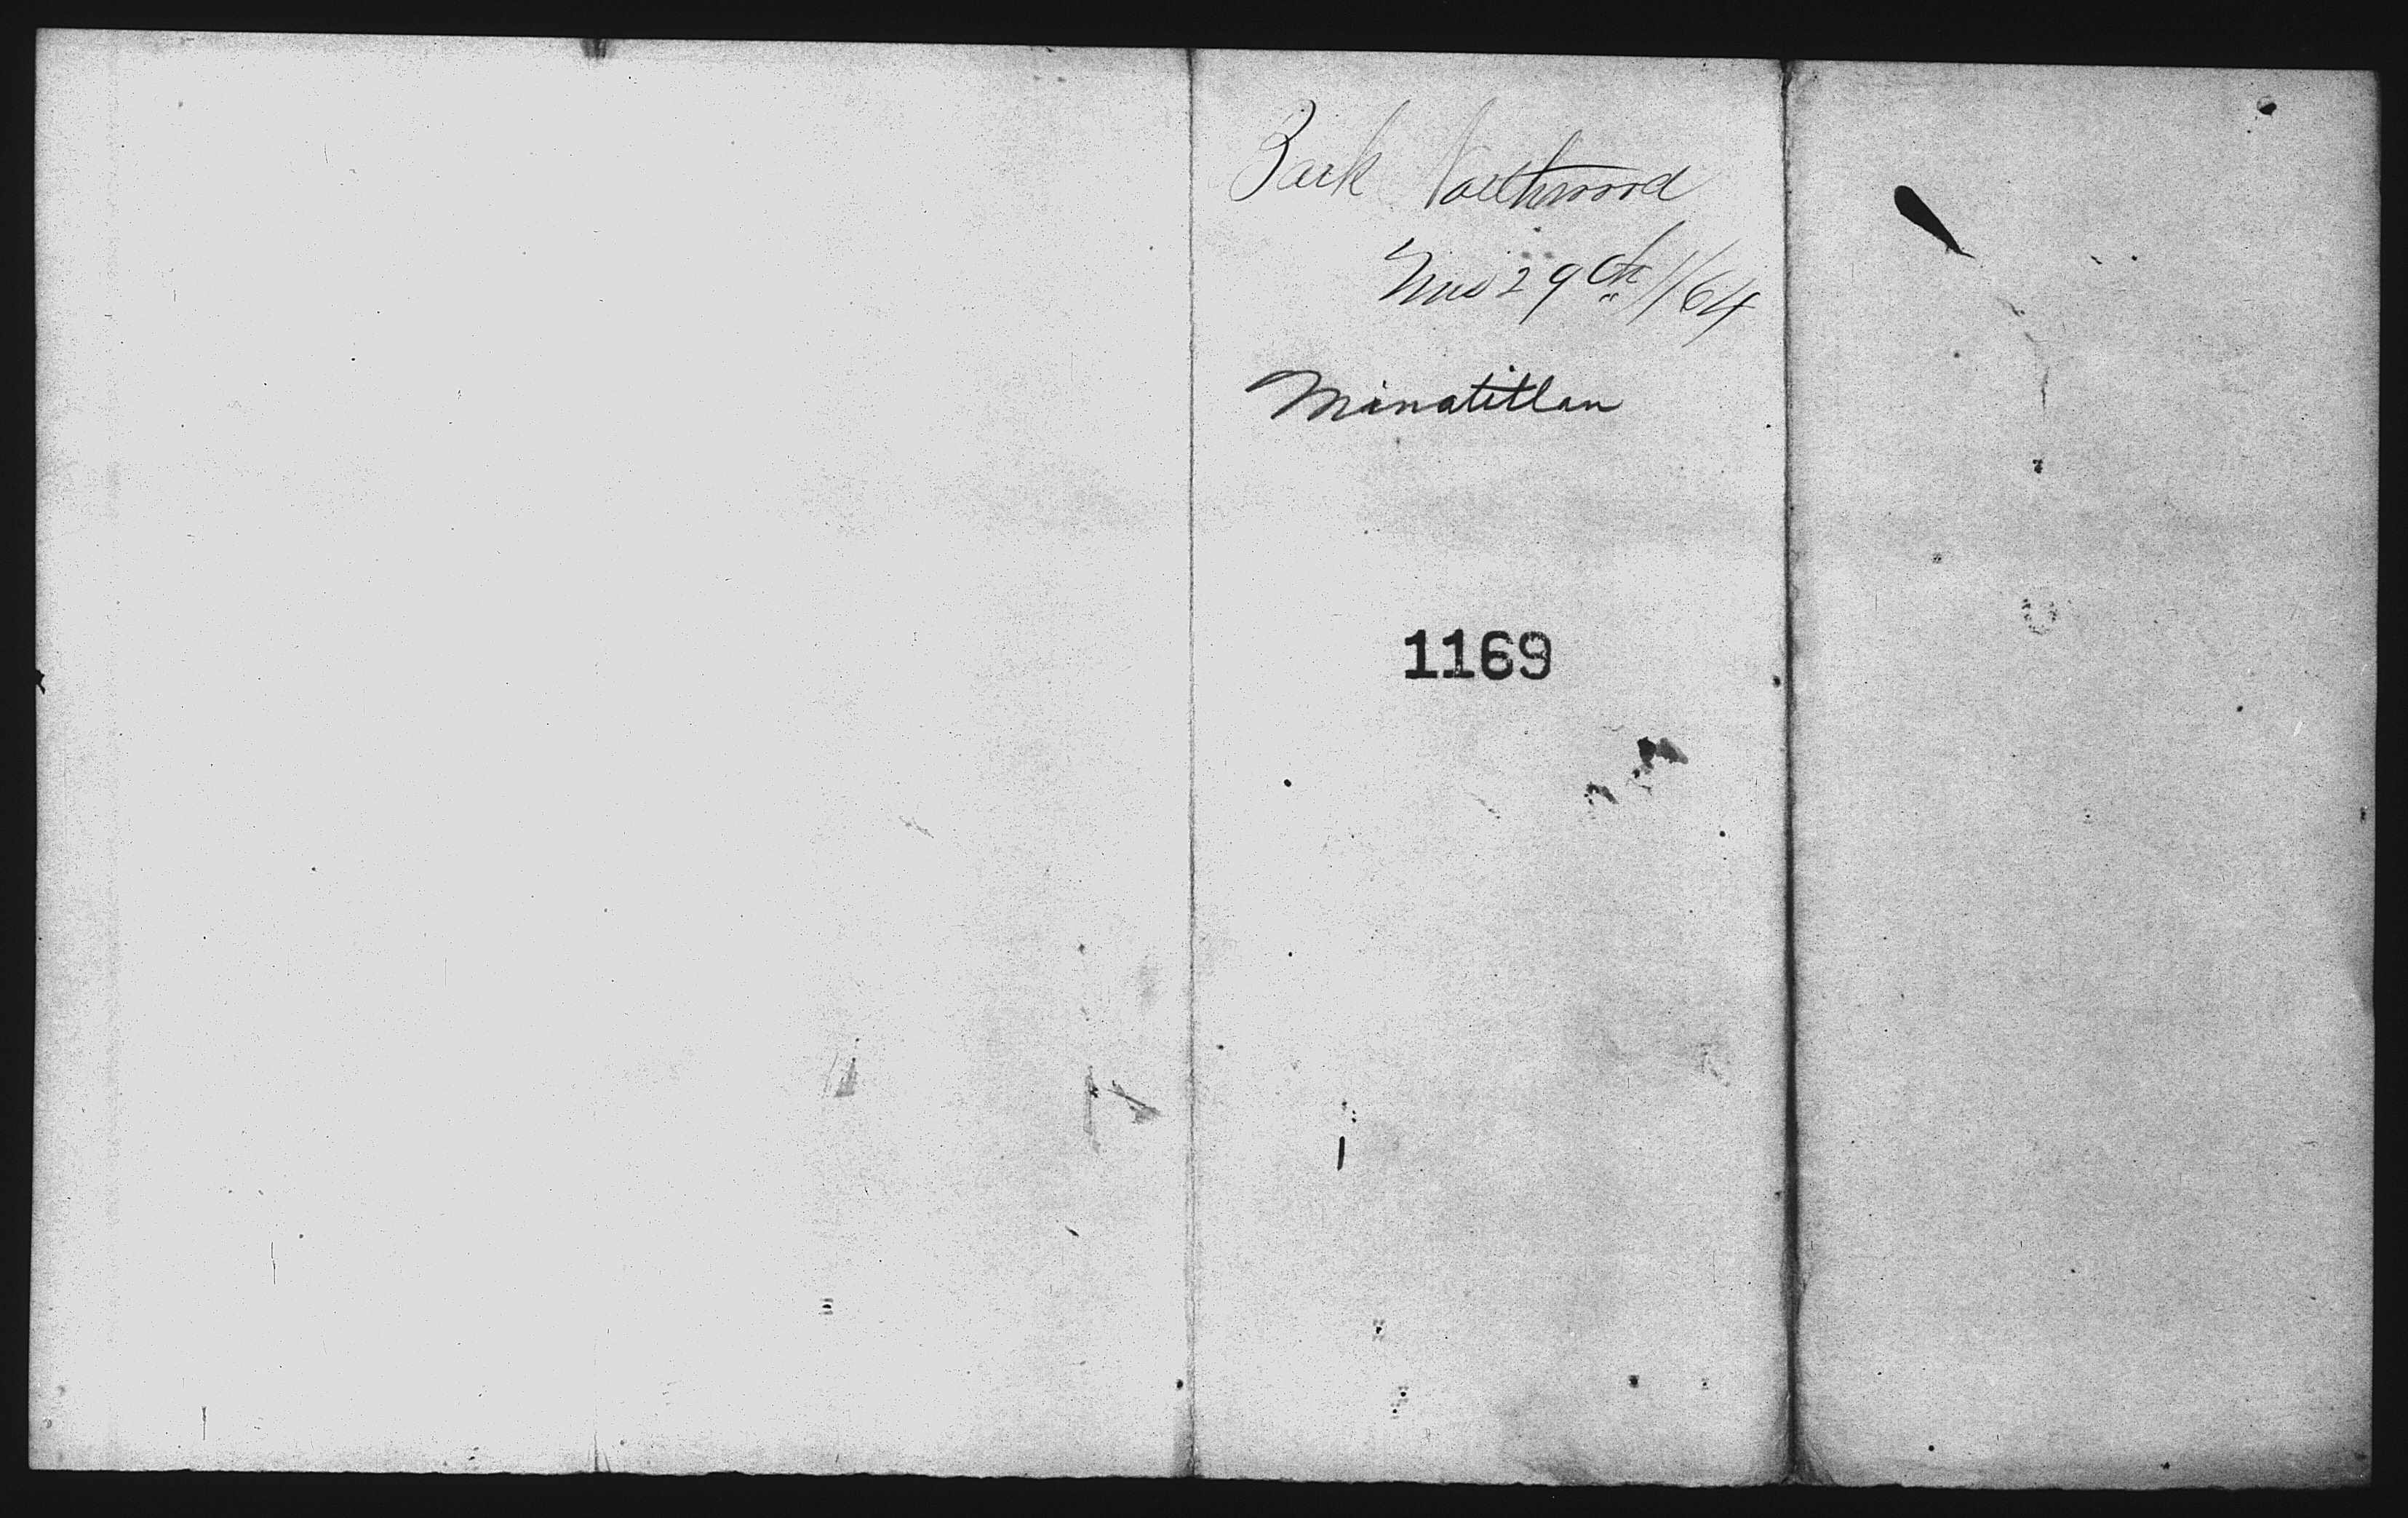 Bark Northwood
Nov 29th/64
Minatitlan
1169